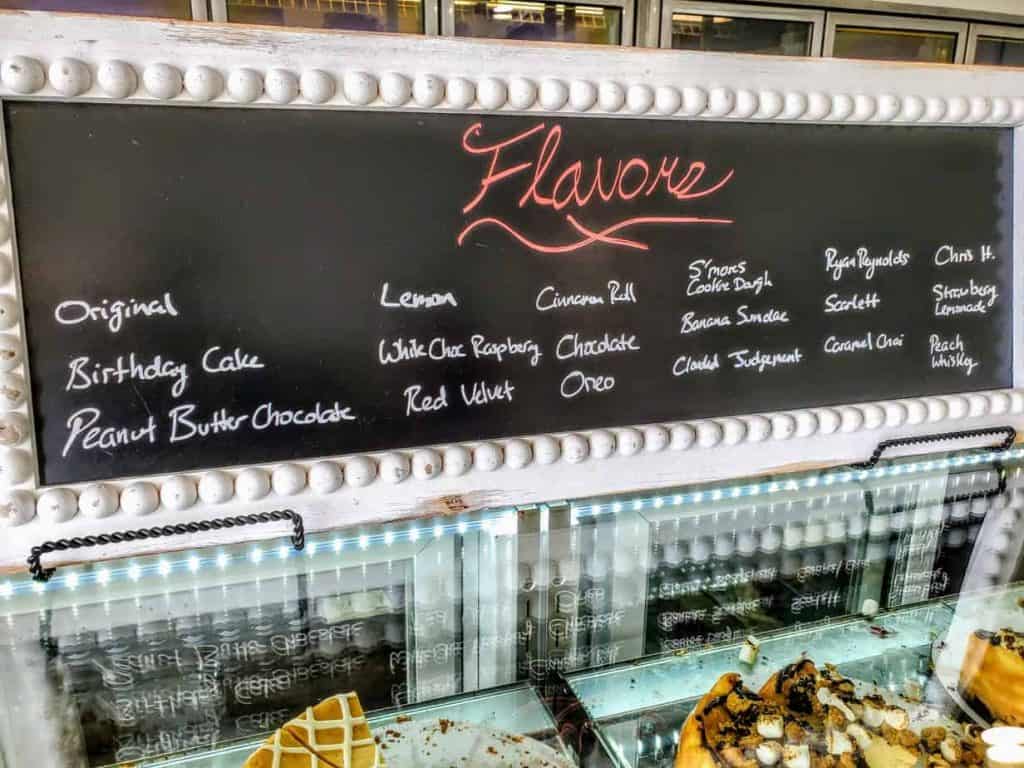 Flavors
Original
Birthday Cake
Peanut Butter Chocolate
Lemon
White Choc Raspberry
Red Velvet
Cinnamon Roll
Chocolate
Oreo
S'mores
Cookie Dough
Banana Sundae
Clouded Judgement
Ryan Reynolds
Scarlett
Caramel Chai
Chris H.
Strawberry
Lemonade
Peach
Whiskey